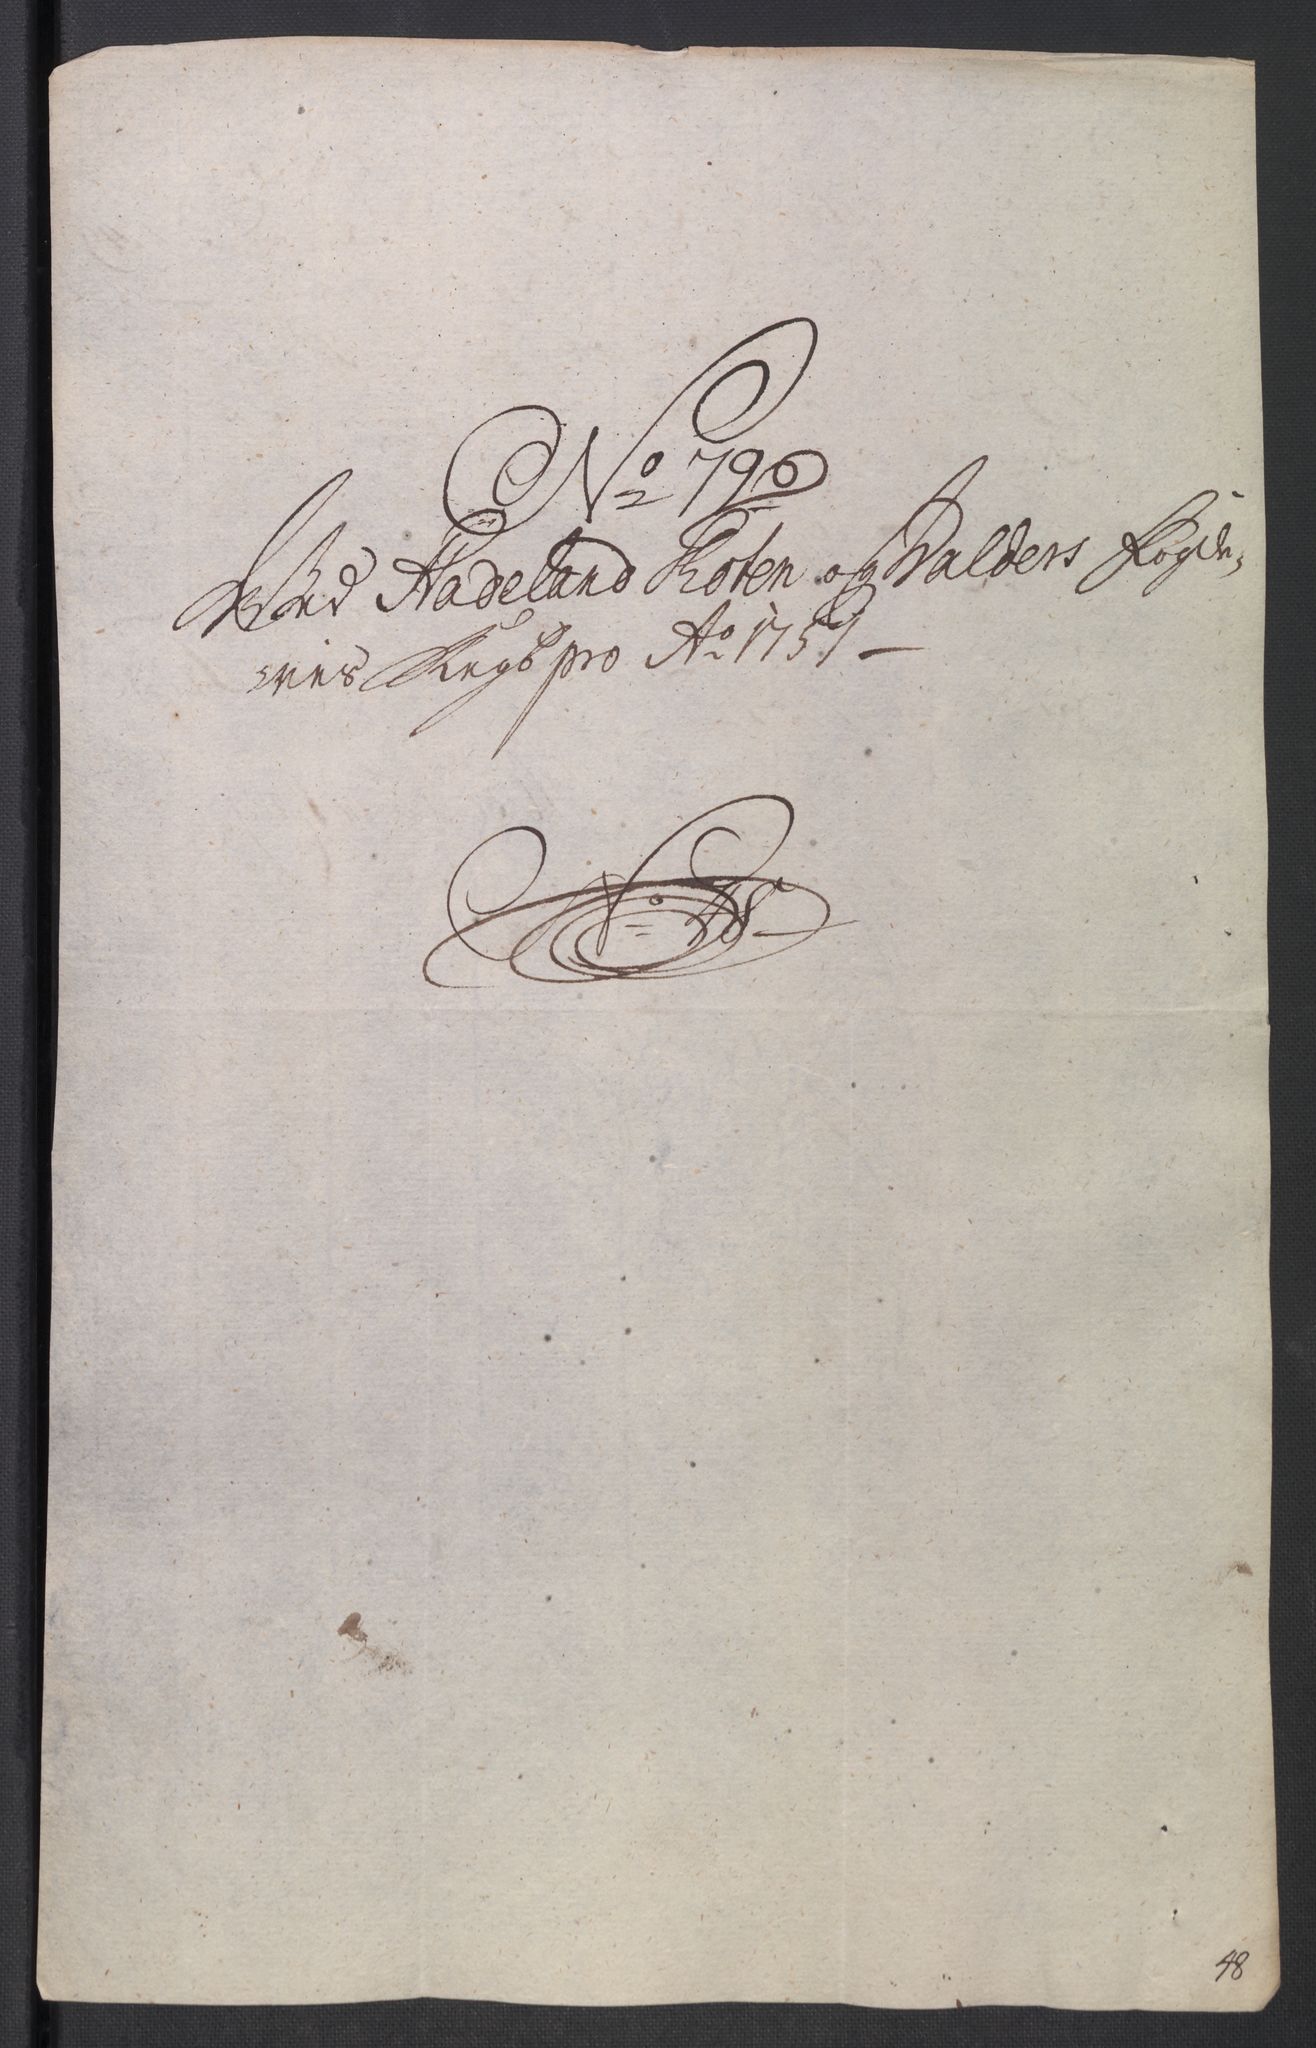 No 796
Wed Hadeland Toten og Walders Fogde,
ries Regsk pro Ao 1751
No 48
48